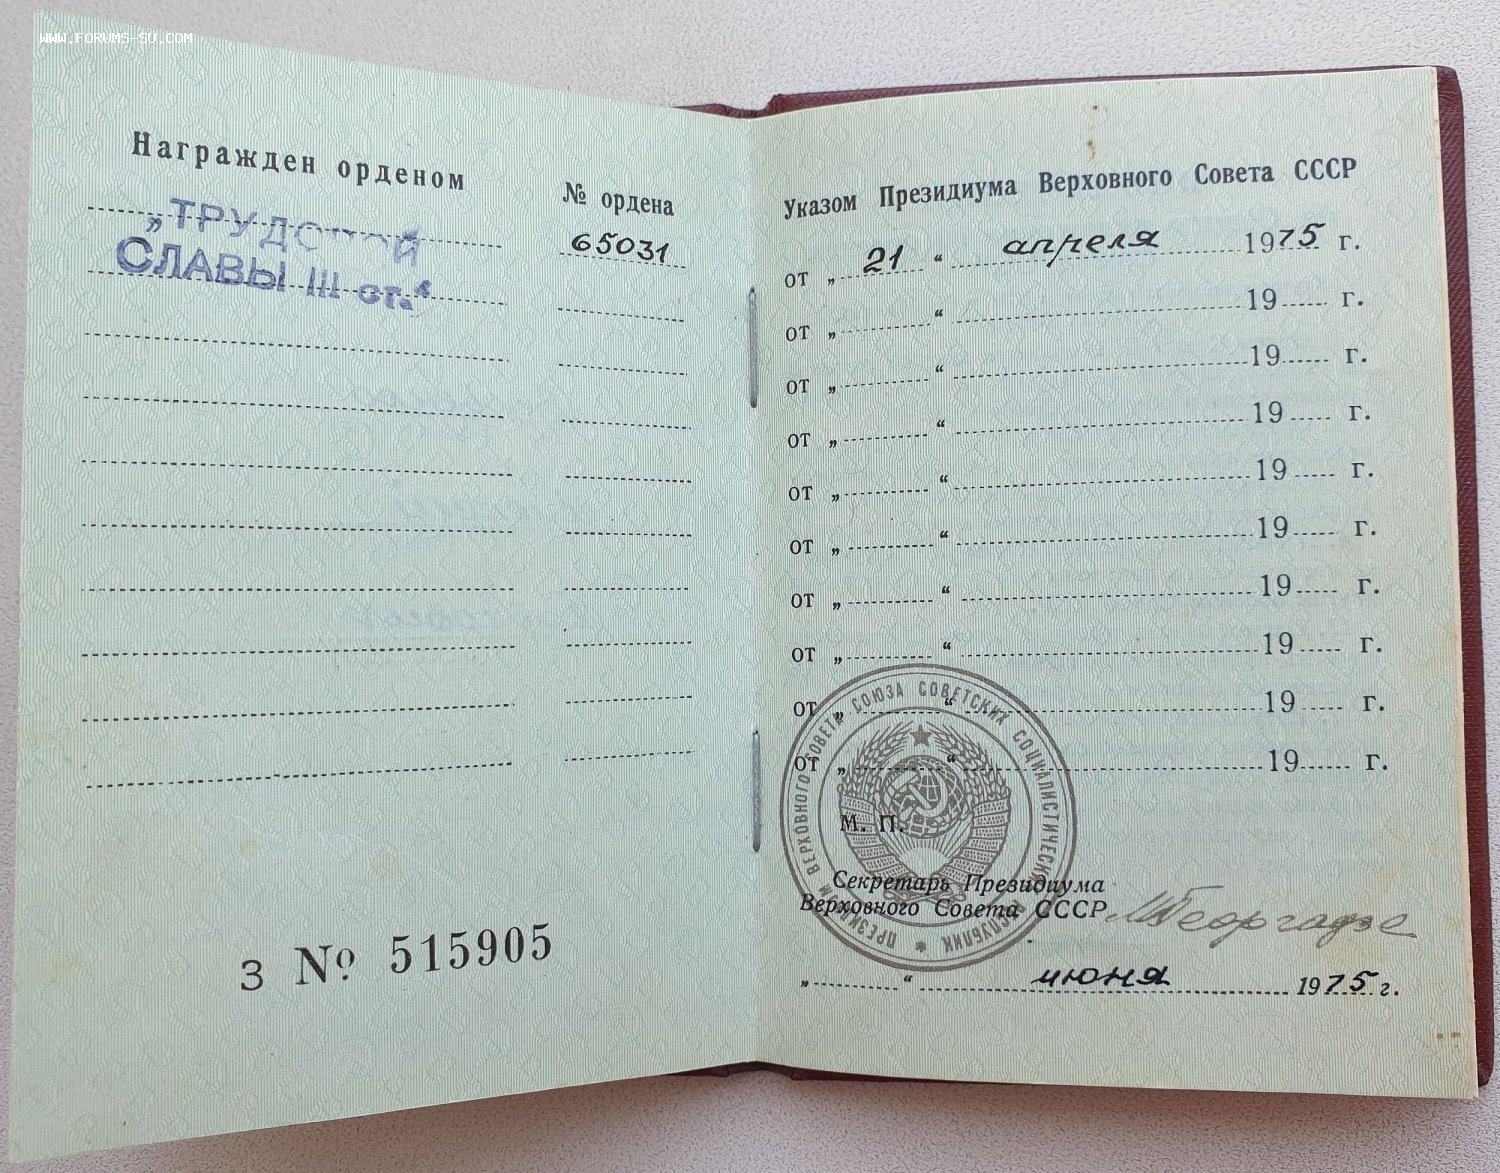 WWW.FORUMS-SU.COM
Награжден орденом
№ ордена
„ТРУДОВОЙ
СЛАВЫ III ст.“
65031
З № 515905
Указом Президиума Верховного Совета СССР
от „ 21 “ апреля 1975 г.
от „ “ 19 г.
от „ “ 19 г.
от „ “ 19 г.
от „ “ 19 г.
от „ “ 19 г.
от „ “ 19 г.
от „ “ 19 г.
от „ “ 19 г.
от „ “ 19 г.
ПРЕЗИДИУМ ВЕРХОВНОГО СОВЕТА СОЮЗА СОВЕТСКИХ СОЦИАЛИСТИЧЕСКИХ РЕСПУБЛИК
М. П.
Секретарь Президиума
Верховного Совета СССР МГеоргадзе
„ “ июня 1975 г.